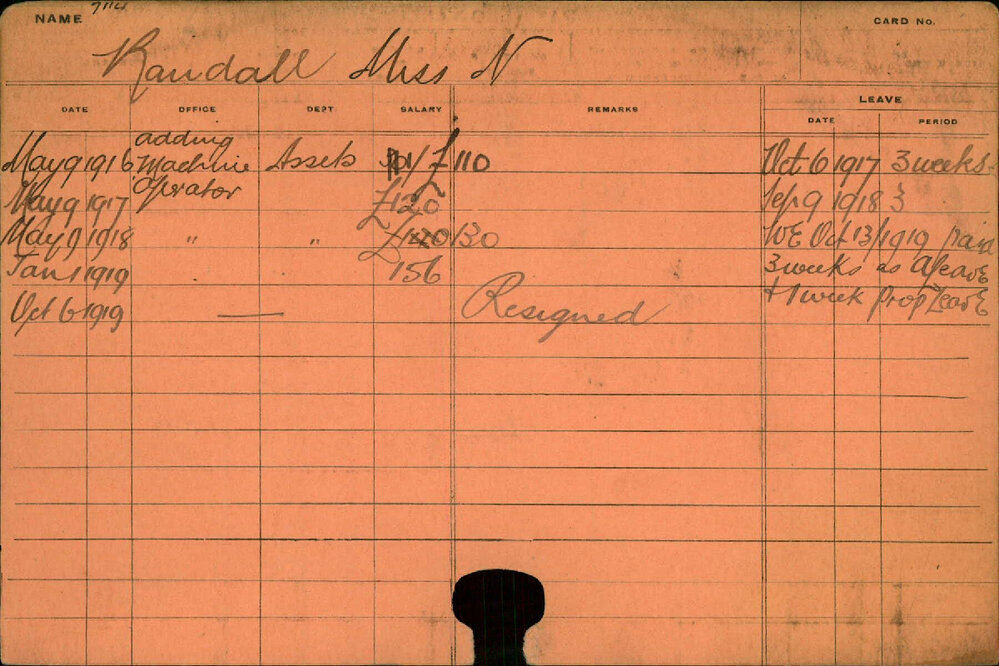 NAME
CARD No.
Randall Miss N
DATE OFFICE DEPT SALARY REMARKS LEAVE
DATE PERIOD
May 9 1916 adding Machine Operator Assets £110 Oct 6 1917 3 weeks
May 9 1917 £120 Sep 9 1918 3
May 9 1918 " " £140 130 WE Oct 13/1919 paid
Jan 1 1919 156 3 weeks as Aleave
Oct 6 1919 — Resigned + 1 week Prop Leave